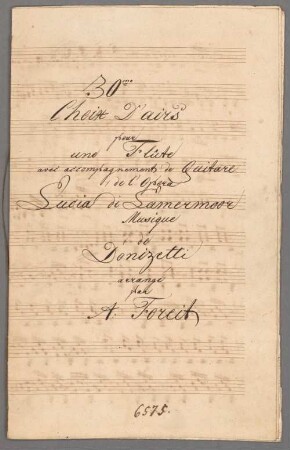 30me
Choix D'airs
pour
une Flûte
avec accompagnement de Guitare
de l'Opéra
Lucia di Lamermoor
Musique
de
Donizetti
arrangé
par
A. Forcit
6575.